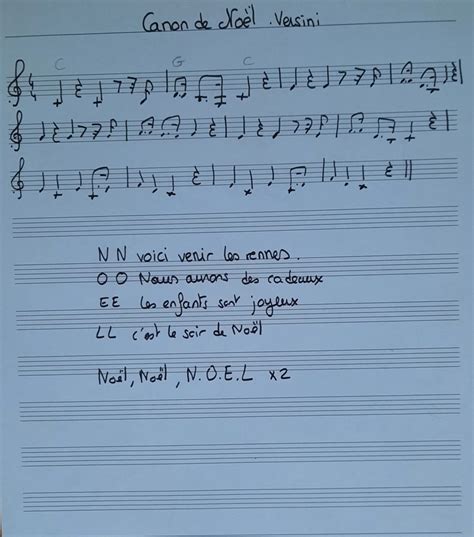 Canon de Noël . Versini
C G C
N N voici venir les rennes.
O O Nous aurons des cadeaux
EE les enfants sont joyeux
LL c'est le soir de Noël
Noël, Noël, N.O.E.L x2